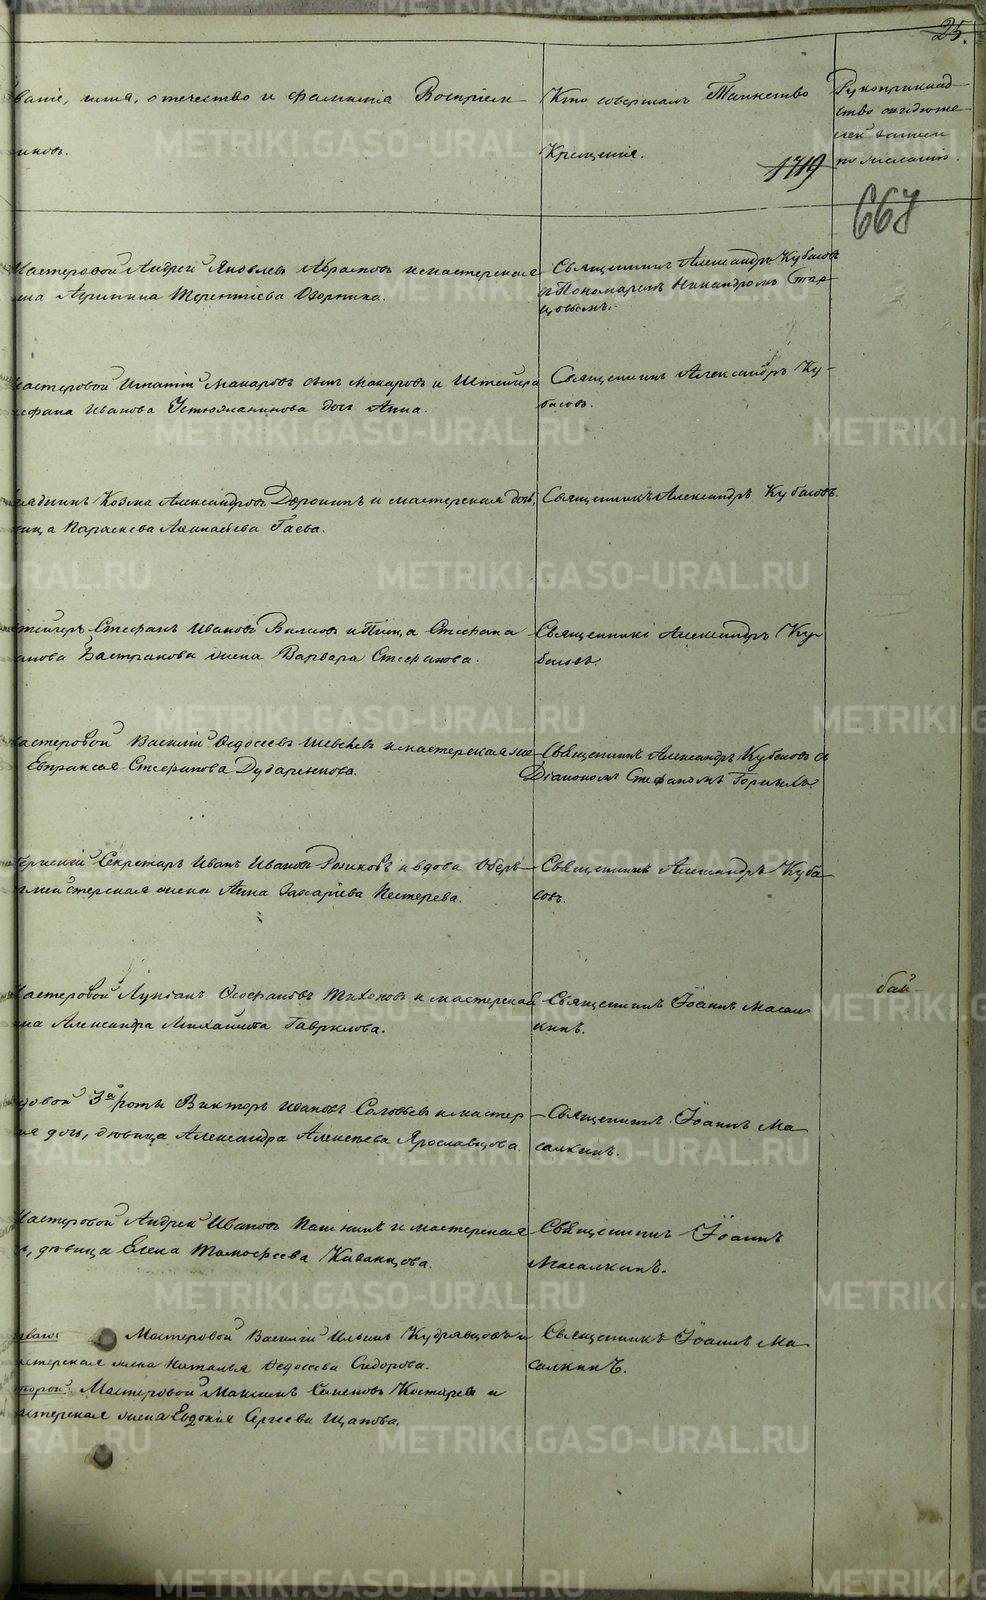 25.
вание, имя, отечество и фамилия Восприем
никовъ.
Кто совершалъ Таинство
Крещенія.
1719
Рукоприклад
ство свидѣте
лей записи
по желанію.
667
Мастеровой Андрей Яковлевъ Абрамовъ и мастерская
Терентіева
Священникъ Александръ Кубасовъ
съ Пономаремъ Никандромъ Стар
цовымъ.
мастеровой Игнатій Макаровъ сынъ Макаровъ и Штейгера
ефана Иванова Устюжанинова дочь Анна.
Священникъ Александръ Ку-
басовъ.
Козма Александровъ Доронинъ и мастерская дочь,
вица Параскева Аѳанасьева Гаева.
Священникъ Александръ Кубасовъ.
тейгеръ Стефанъ Ивановъ и Стефана
анова жена Варвара Стефанова.
Священникъ Александръ Ку-
басовъ.
мастеровой Василій Ѳедосеевъ и мастерская же
Евпраксея Стефанова
Священникъ Александръ Кубасовъ съ
Діакономъ Стефаномъ Горныхъ.
Секретарь Иванъ Ивановъ и вдова Оберъ-
мейстерская жена Анна Захаріева Пестерева.
Священникъ Александръ Куба
совъ.
Мастеровой Лукіанъ Ѳеофановъ Тихоновъ и мастерская
на Александра Михайлова Гаврилова.
Священникъ Іоаннъ Масал
кинъ.
бай
довой 3й роты Викторъ Ивановъ Соловьевъ и мастер
ая дочь, дѣвица Александра Алексѣева Ярославцова.
Священникъ Іоаннъ Ма
салкинъ.
Мастеровой Андрей Ивановъ и мастерская
дѣвица Елена Тимофеева
Священникъ Іоаннъ
Масалкинъ.
Мастеровой Василій Ильинъ Кудрявцовъ и
астерская жена Наталья Ѳедосеева Сидорова.
торой: Мастеровой Максимъ Семеновъ Костаревъ и
астерская жена Евдокія Сергеева Щапова.
Священникъ Іоаннъ Ма
салкинъ.
METRIKI.GASO-URAL.RU